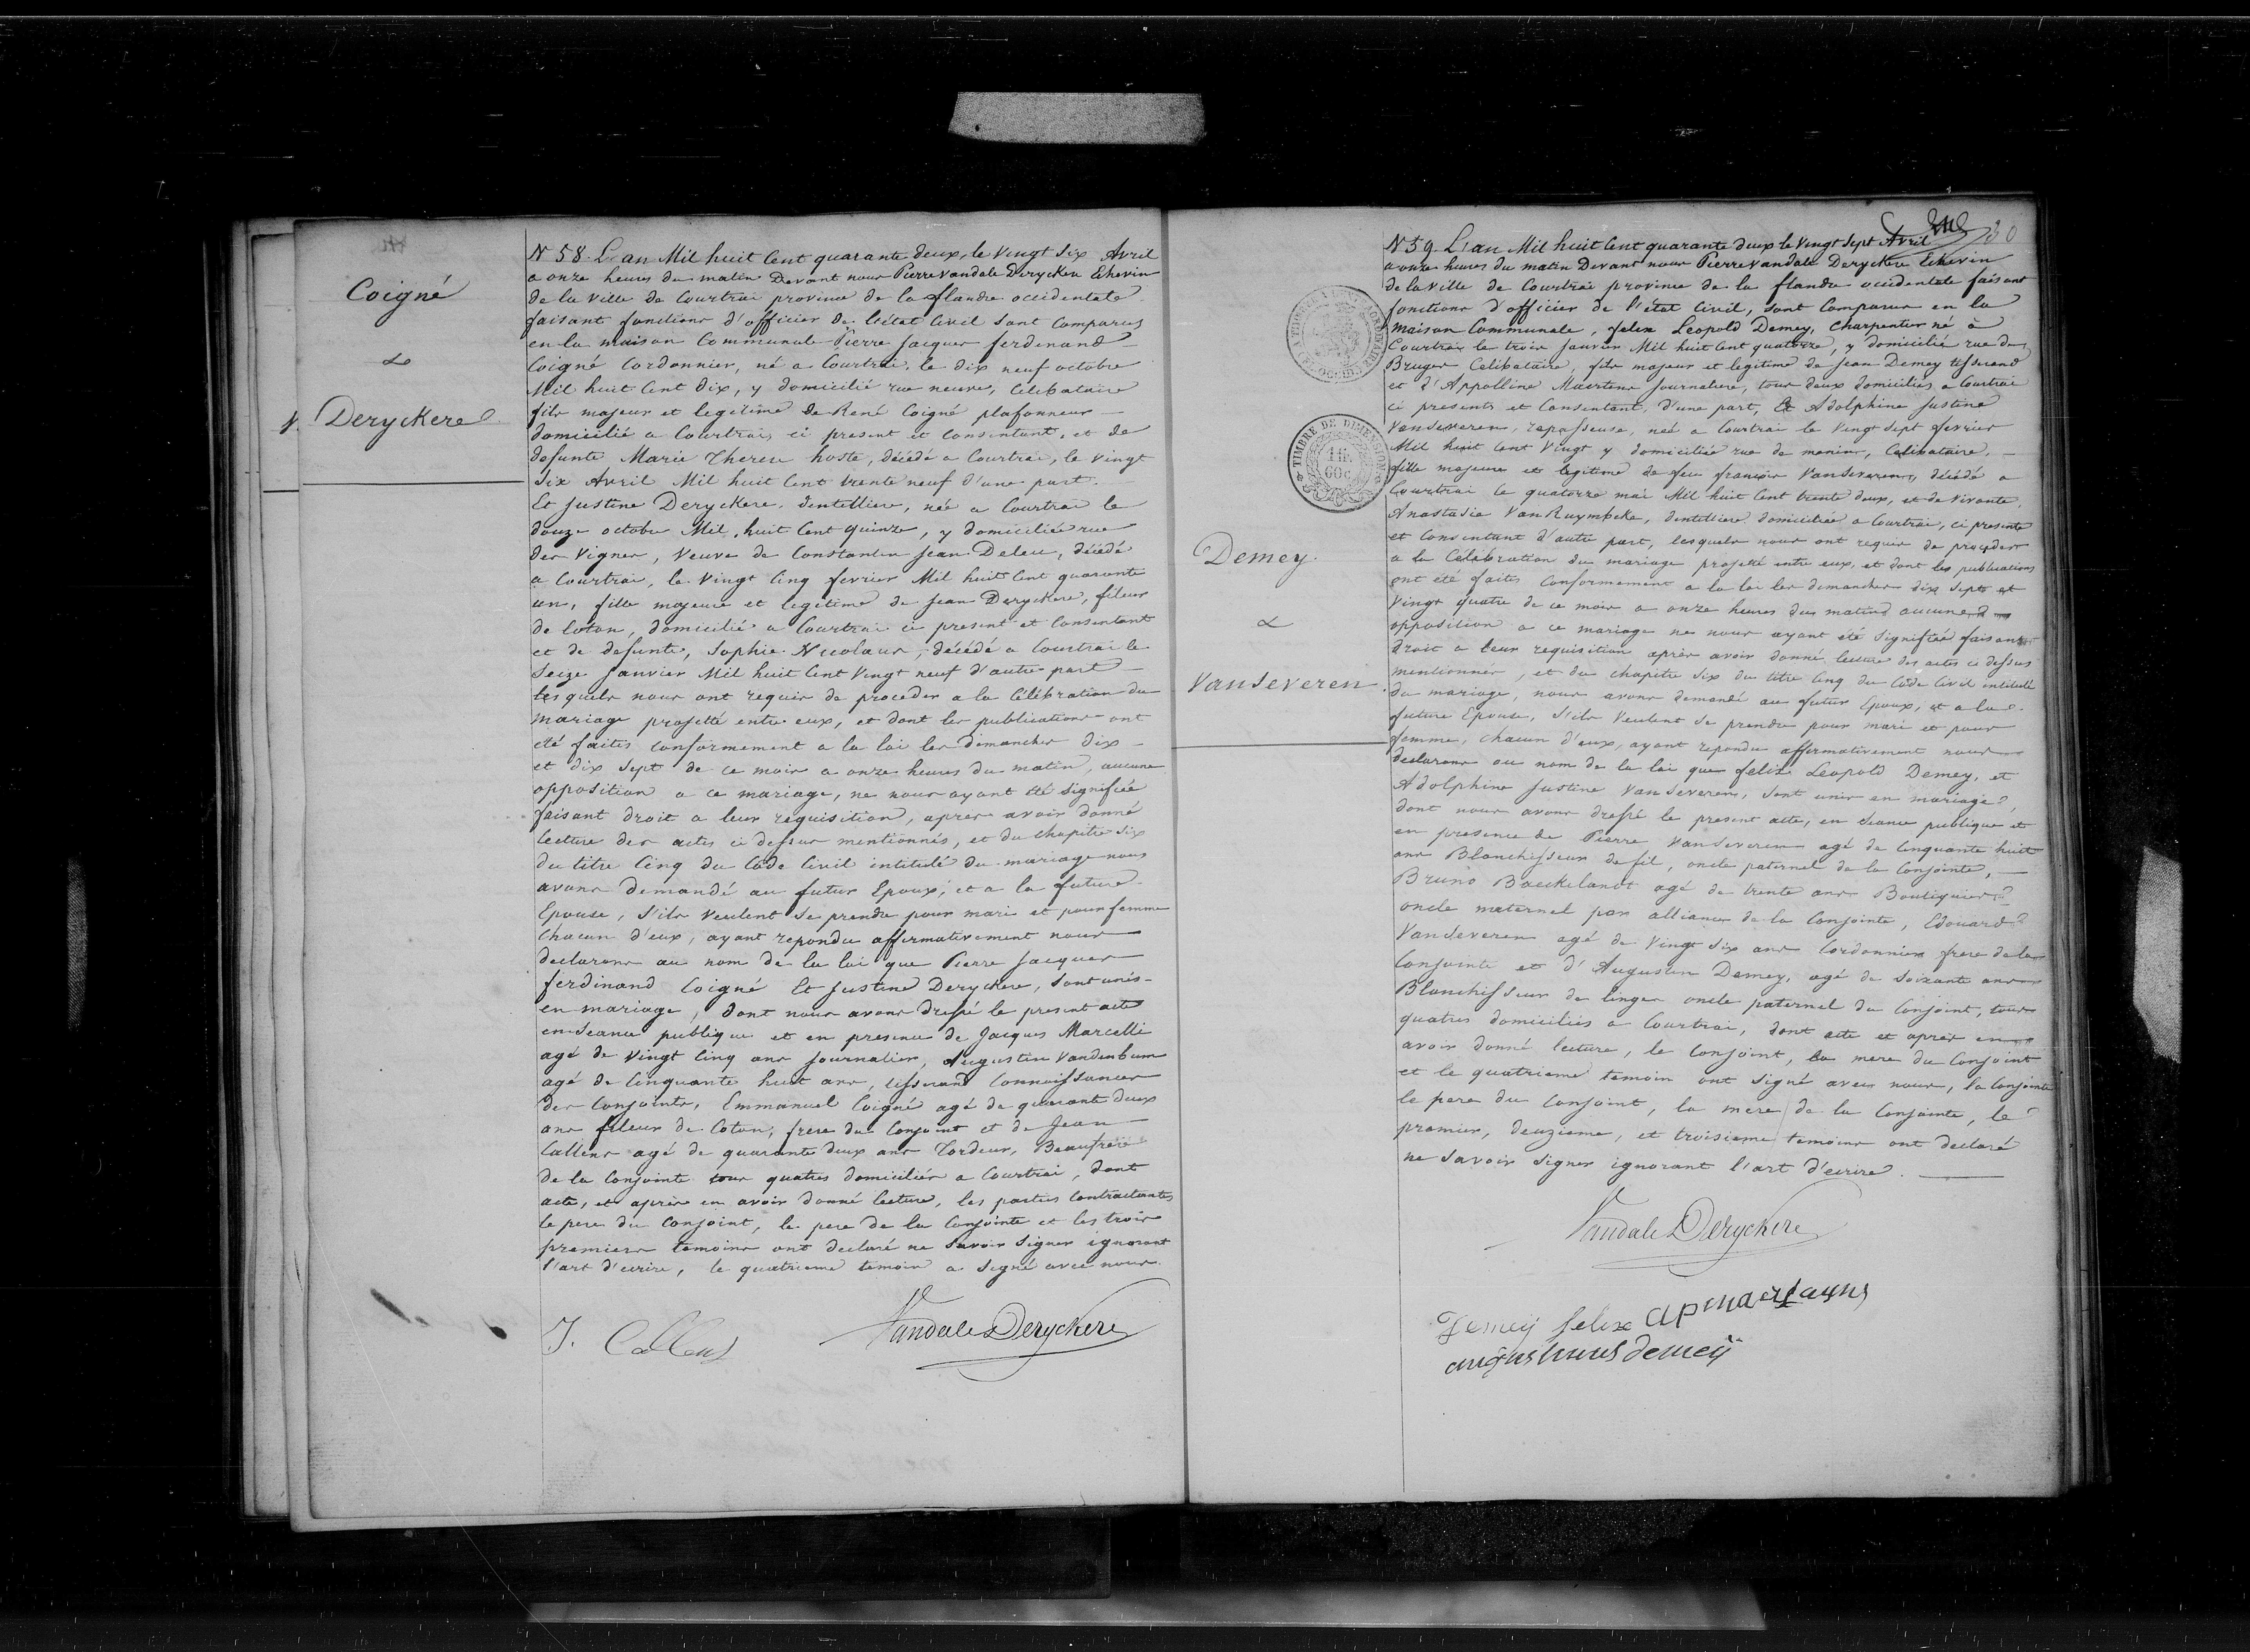 Coigné
&
V. Deryckere
N 58. L'an Mil huit Cent quarante deux, le Vingt Six Avril
a onze heures du matin Devant nous Pierre Vandale Deryckere Echevin
de la Ville de Courtrai province de la flandre occidentale
faisant fonctions d'officier de l'état Civil sont Comparus
en la maison Communale Pierre Jacques ferdinand
Coigné Cordonnier, né a Courtrai, le dix neuf octobre
Mil huit Cent dix, y domicilié rue neuve, Célibataire
fils majeur et legitime de René Coigné plafonneur
domicilié a Courtrai, ci present et consentant, et de
defunte Marie Therese hoste, décédé a Courtrai, le vingt
Six Avril Mil huit Cent trente neuf d'une part.
Et Justine Deryckere, dentelliere, née a Courtrai le
douze octobre Mil huit Cent quinze, y domiciliée rue
des Vignes, Veuve de Constantin Jean Deleu, décédé
a Courtrai, le Vingt Cinq fevrier Mil huit Cent quarante
un, fille majeure et legitime de Jean Deryckere, fileur
de Coton, domicilié a Courtrai ci present et Consentant
et de defunte, Sophie Nicolaus, décédé a Courtrai le
Seize Janvier Mil huit Cent Vingt neuf d'autre part
lesquels nous ont requis de proceder a la Célébration du
mariage projetté entre eux, et dont les publications ont
été faites conformement a la loi les dimanches dix
et dix Sept de ce mois a onze heures du matin, aucune
opposition a ce mariage, ne nous ayant été signifiée
faisant droit a leur requisition, apres avoir donné
lecture des actes ci dessus mentionnés, et du chapitre Six
du titre Cinq du Code Civil intitulé du mariage nous
avons demandé au futur Epoux, et a la future
Epouse, s'ils Veulent se prendre pour mari et pour femme
Chacun d'eux, ayant repondu affirmativement nous
declarons au nom de la loi que Pierre Jacques
ferdinand Coigné Et Justine Deryckere, sont unis
en mariage, dont nous avons dressé le present acte
en seance publique et en presence de Jacques Marcelli
agé de Vingt Cinq ans Journalier, Augustin Vandenbum
agé de Cinquante huit ans, tisserand Connaissances
des Conjoints, Emmanuel Coigné agé de quarante deux
ans fileur de Coton, frere du Conjoint et de Jean
Callens agé de quarante deux ans Tordeur, Beaufrere
de la Conjointe tous quatres domiciliés a Courtrai, dont
acte, et après en avoir donné lecture, les parties Contractantes
le pere du Conjoint, le pere de la Conjointe et les trois
premiers temoins ont declaré ne savoir signer ignorant
l'art d'ecrire, le quatrieme temoin a signé avec nous
J. Callens
Vandale Deryckere
30
TIMBRE DE DIMENSION
1 fr.
60 c.
Demey
&
Vanseveren
N 59. L'an Mil huit Cent quarante deux le Vingt Sept Avril
a onze heures du matin Devant nous Pierre Vandale Deryckere Echevin
de la Ville de Courtrai province de la flandre occidentale faisant
fonctions d'officier de l'état Civil, sont Comparus en la
maison Communale, felix Leopold Demey, Charpentier né à
Courtrai le trois Janvier Mil huit Cent quatorze, y domicilié rue de
Bruges Celibataire, fils majeur et legitime de Jean Demey tisserand
et d'Appolline Maertens Journaliere, tous deux domiciliés a Courtrai
ci presents et Consentant, d'une part, Et Adolphine Justine
Vanseveren, repasseuse, neé a Courtrai le Vingt Sept fevrier
Mil huit Cent Vingt y domiciliée rue de menin, Celibataire,
fille majeure et legitime de feu françois Vanseveren, décédé a
Courtrai le quatorze mai Mil huit Cent trente deux, et de vivante,
Anastasie Van Ruymbeke, dentelliere domiciliée a Courtrai, ci presente
et Consentant d'autre part, lesquels nous ont requis de proceder
a la Célébration du mariage projetté entre eux, et dont les publications
ont été faites Conformement a la loi les dimanches dix Sept et
Vingt quatre de ce mois a onze heures du matin aucune
opposition a ce mariage ne nous ayant été signifiée faisant
droit a leur requisition après avoir donné lecture des actes ci dessus
mentionnés, et du chapitre Six du titre Cinq du Code Civil intitulé
du mariage, nous avons demandé au futur Epoux, et a la
future Epouse, s'ils Veulent se prendre pour mari et pour
femme, Chacun d'eux, ayant repondu affirmativement nous
declarons au nom de la loi que felix Leopold Demey, et
Adolphine Justine Vanseveren, sont unis en mariage,
dont nous avons dressé le present acte, en seance publique et
en presence de Pierre Vanseveren agé de Cinquante huit
ans Blanchisseur de fil, oncle paternel de la Conjointe,
Bruno Baeckelandt agé de trente ans Boutiquier
oncle maternel par alliance de la Conjointe, Edouard
Vanseveren agé de Vingt Six ans Cordonnier frere de la
Conjointe et d'Augustin Demey, agé de Soixante ans
Blanchisseur de linges oncle paternel du Conjoint, tous
quatres domiciliés a Courtrai, dont acte et après en
avoir donné lecture, le Conjoint, la mere du Conjoint
et le quatrieme temoin ont signé avec nous, la Conjointe
le pere du Conjoint, la mere de la Conjointe, le
premier, deuzieme, et troisieme temoins ont declaré
ne savoir signer ignorant l'art d'ecrire.
Vandale Deryckere
Demeij felix
augustinus demeij